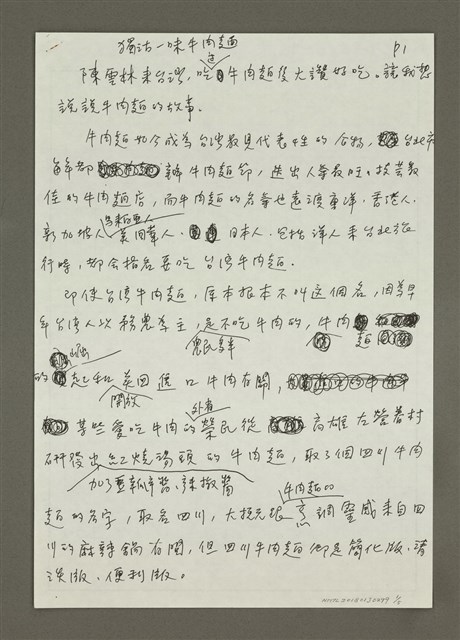 獨沽一味牛肉麵
P1
陳雲林來台灣,吃過牛肉麵後大讚好吃。讓我想
說說牛肉麵的故事。
牛肉麵如今成為台灣最具代表性的食物,台北市
每年都辦牛肉麵節,選出人氣最旺、技藝最
佳的牛肉麵店,而牛肉麵的名聲也遠渡東洋,香港人、
新加坡人、馬來西亞人、英國華人、日本人、包括洋人來台北旅
行時,都会指名要吃台湾牛肉麵。
即使台灣牛肉麵,原本根本不叫这個名,因為早
年台湾人以務農為主,農民多半是不吃牛肉的,牛肉麵
的崛起和美国開放進口牛肉有關,
某些愛吃牛肉的外省榮民從高雄左營眷村
研發出紅燒湯頭的牛肉麵,取了個四川牛肉
加了豆瓣醬、辣椒醬
麵的名字,取名四川,大抵光根烹調靈感来自四
川的麻辣鍋有関,但四川牛肉麵卻是簡化版、清
淡版、便利版。
牛肉麵的
NMTL20180030499